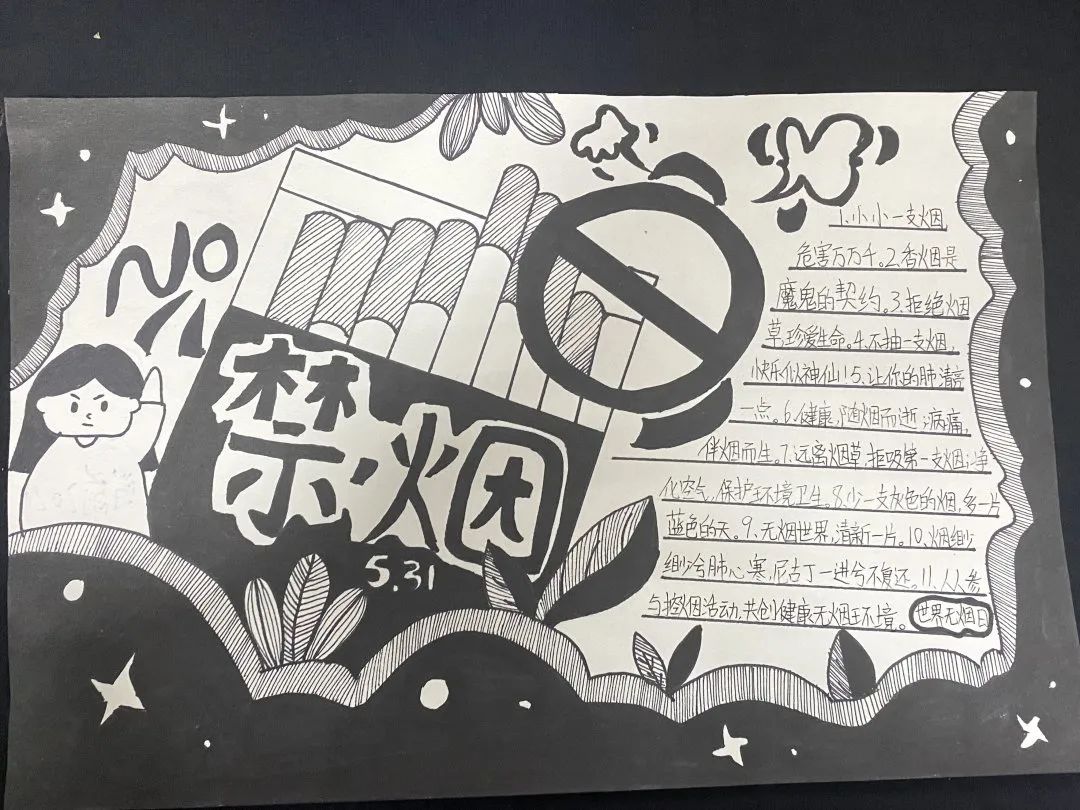 NO
禁烟
5.31
1.小小一支烟,
危害万万千。2.香烟是
魔鬼的契约。3.拒绝烟
草,珍爱生命。4.不抽一支烟,
快乐似神仙!5.让你的肺清亮
一点。6.健康,随烟而逝;病痛,
伴烟而生。7.远离烟草,拒吸第一支烟;净
化空气,保护环境卫生。8.少一支灰色的烟,多一片
蓝色的天。9.无烟世界,清新一片。10.烟缈
缈兮肺心寒,尼古丁一进兮不复还。11.人人参
与控烟活动,共创健康无烟环境。
世界无烟日